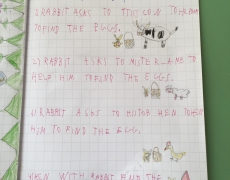 RABBIT ASKS TO THE COW TO HELP HIM
TO FIND THE EGGS.
2) RABBIT ASKS TO
HELP HIM TO FIND THE EGGS.
RABBIT ASKS TO HEN TO HELP
HIM TO FIND THE EGG.
WHEN WITH RABBIT FIND THE